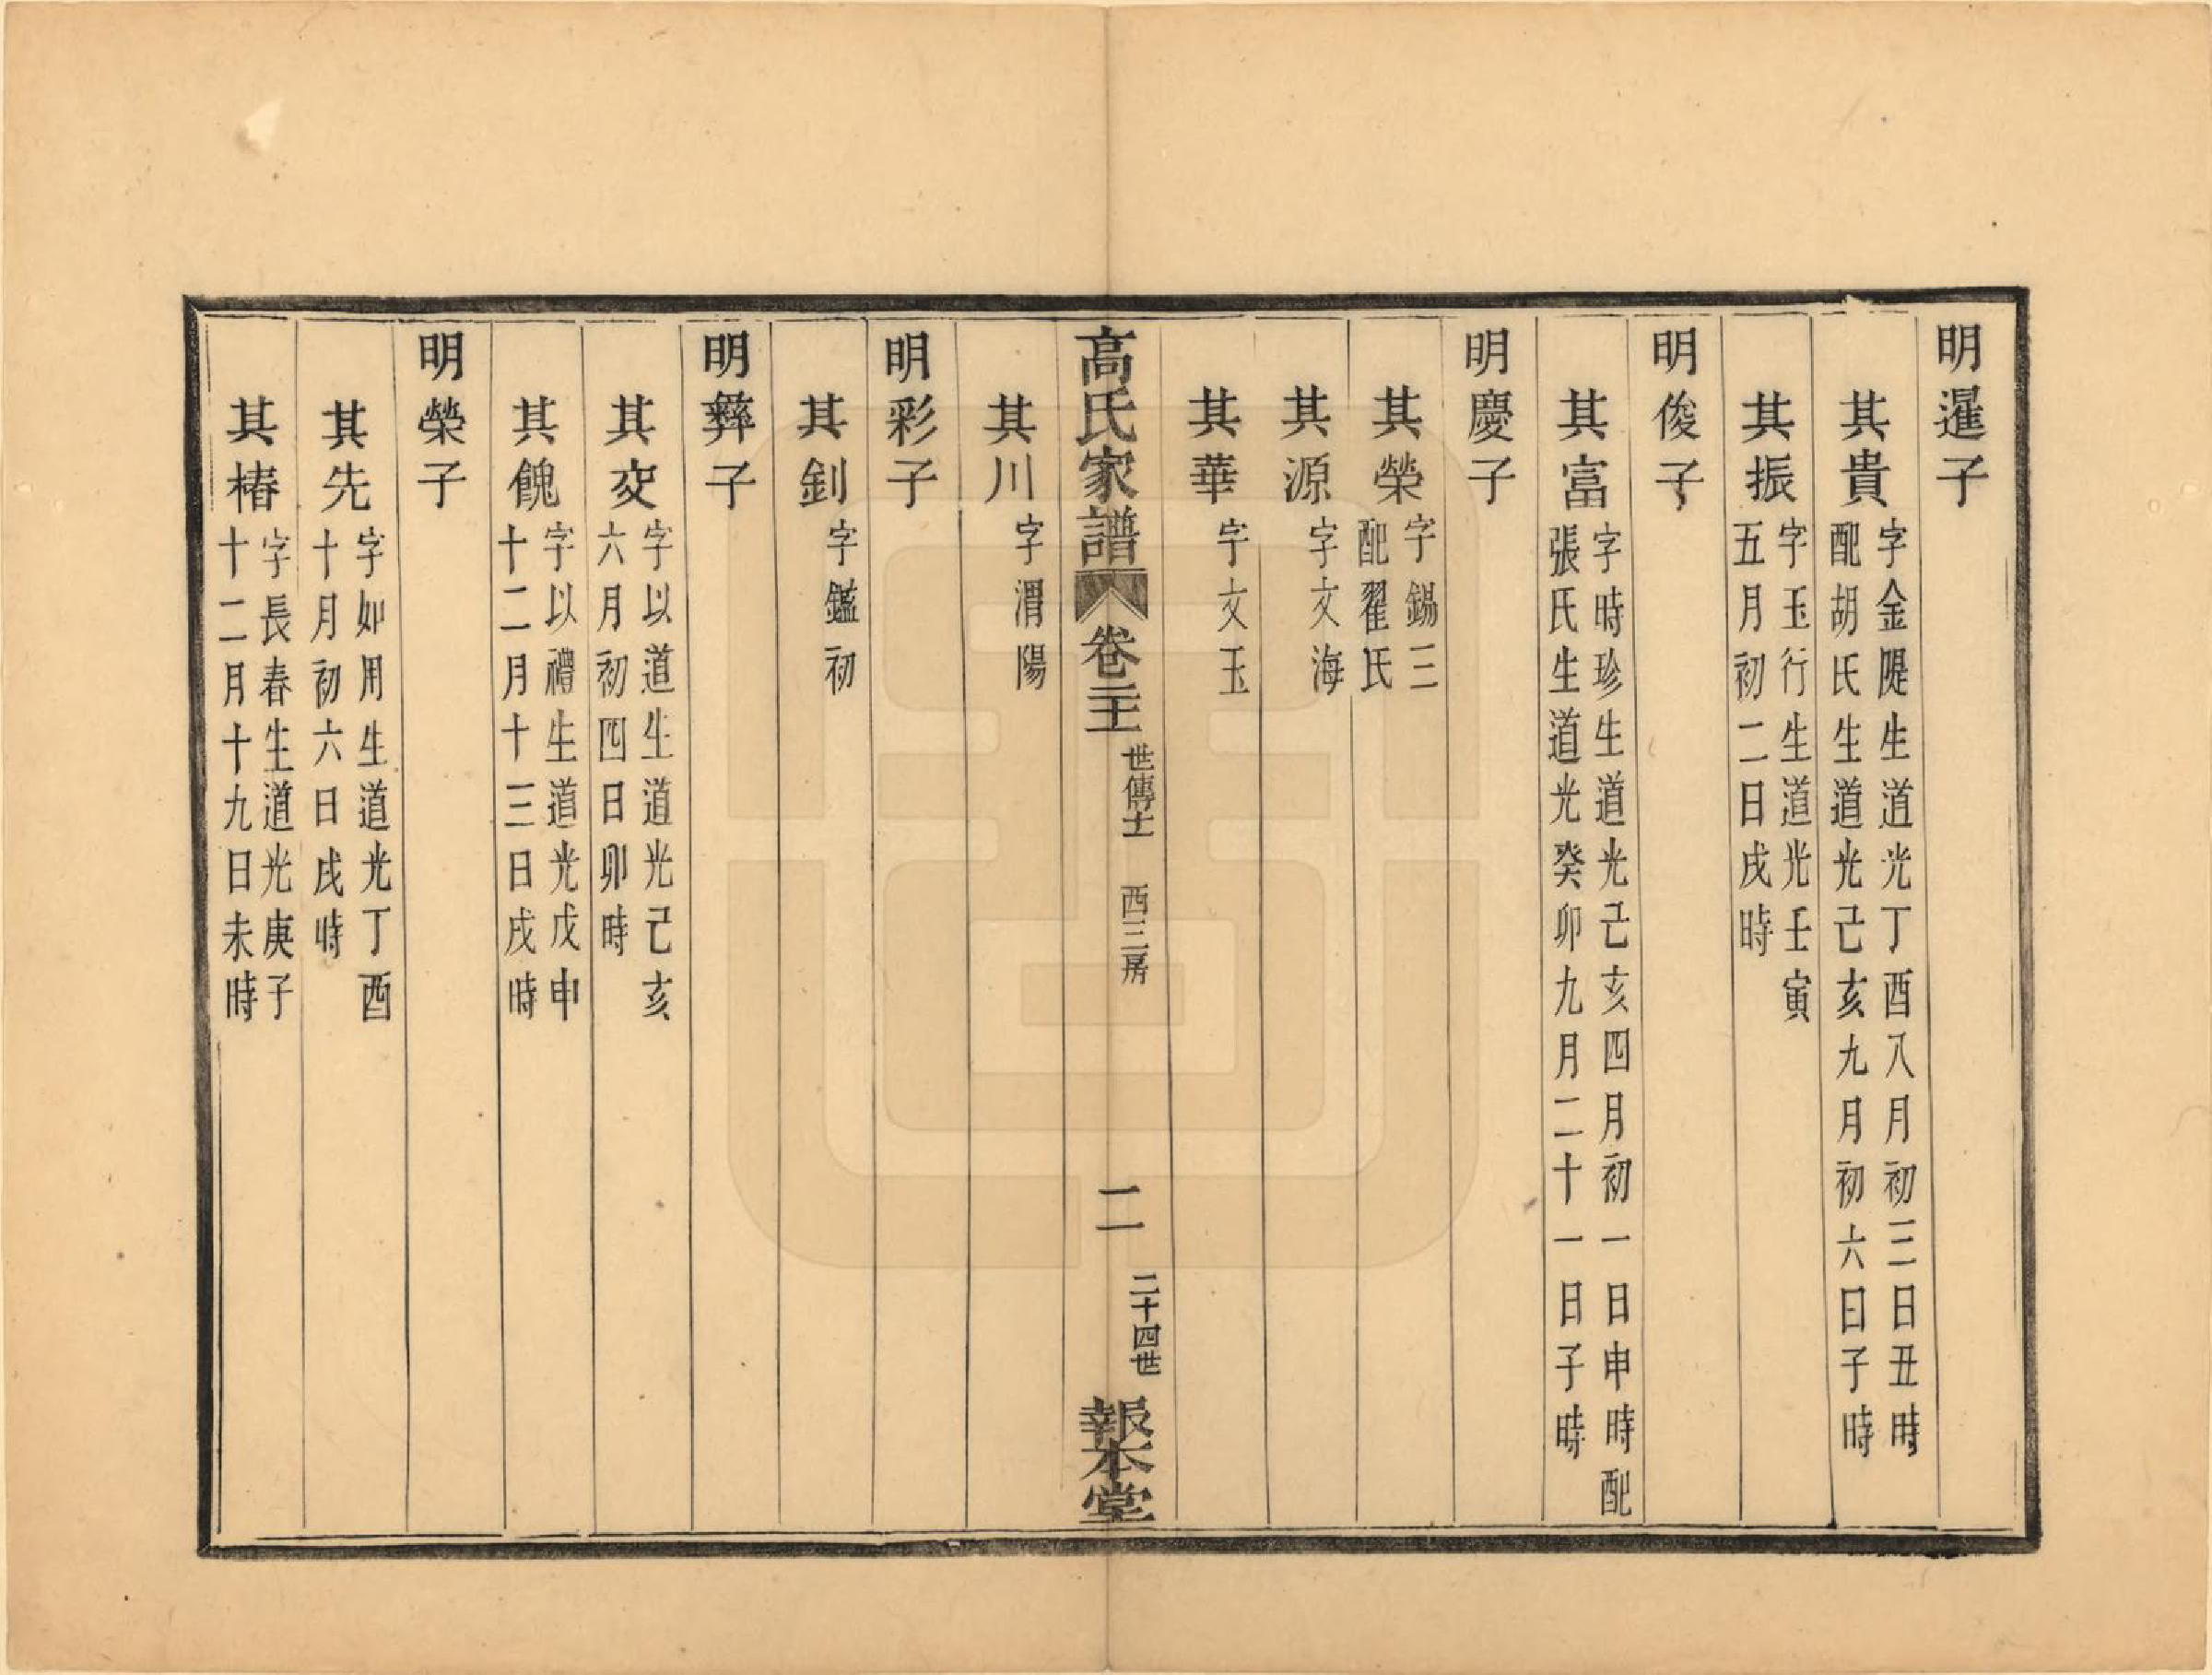 明暹子
其貴
字金隄生道光丁酉八月初三日丑時
配胡氏生道光己亥九月初六日子時
其振
字玉行生道光壬寅
五月初二日戌時
明俊子
其富
字時珍生道光己亥四月初一日申時配
張氏生道光癸卯九月二十一日子時
明慶子
其榮
字錫三
配翟氏
其源
字文海
其華
字文玉
高氏家譜
卷二十
世傳十二
西三房
二
二十四世
報本堂
其川
字渭陽
明彩子
其釗
字鑑初
明彝子
其交
字以道生道光己亥
六月初四日卯時
其餽
字以禮生道光戊申
十二月十三日戌時
明榮子
其先
字如用生道光丁酉
十月初六日戌時
其椿
字長春生道光庚子
十二月十九日未時